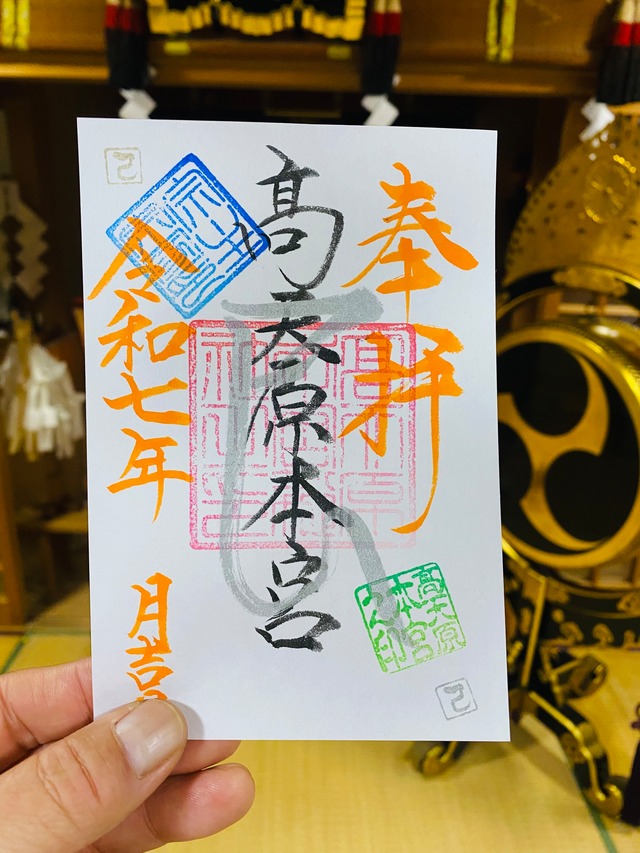 奉拝
高天原本宮
令和七年
月吉
高天原
本宮
之印
己
己